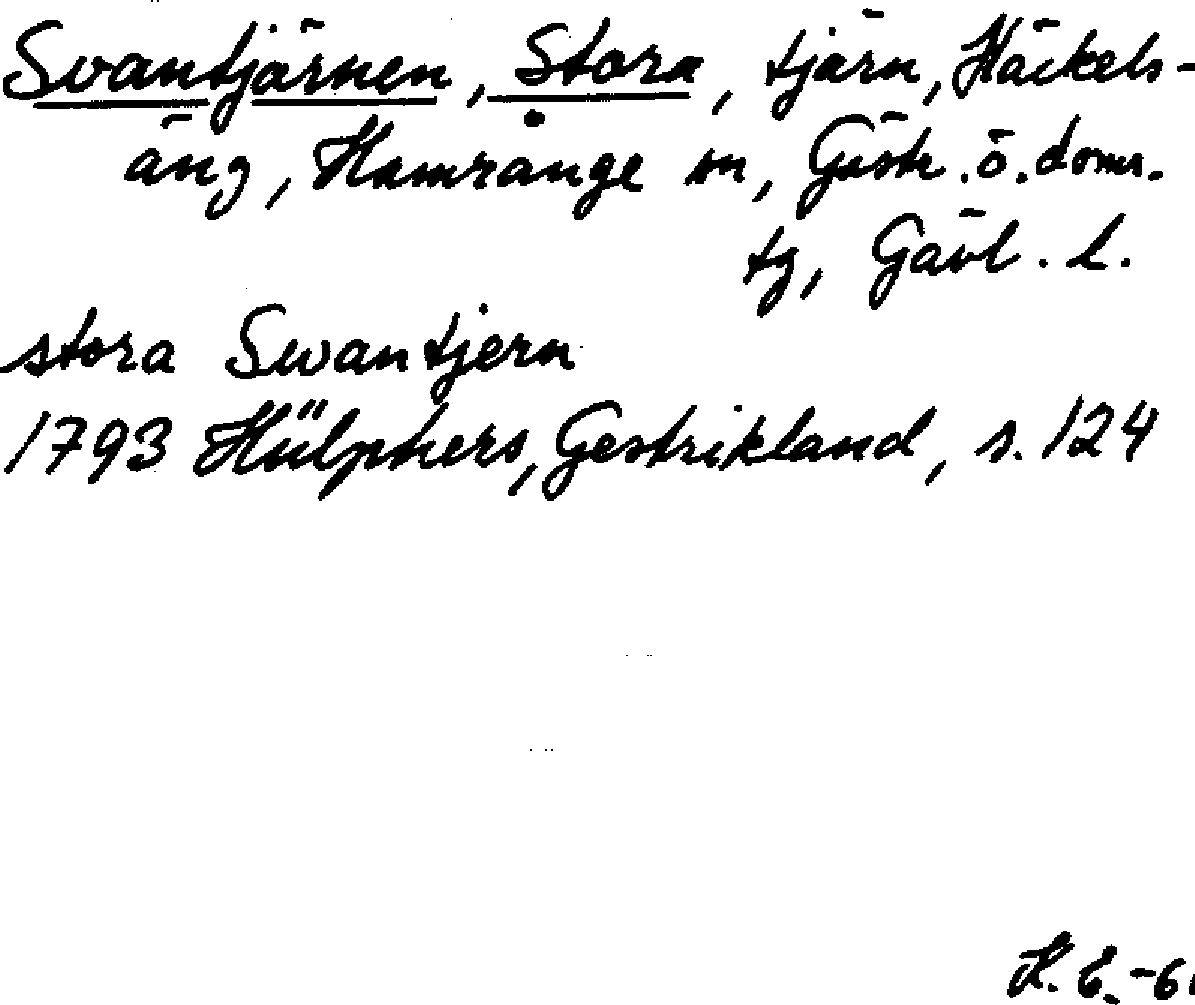 Svantjärnen, Stora, tjärn, Häckels-
äng, Hamrånge sn, Gästr. ö. doms.
tg, Gävl. l.
stora Swantjern
1793 Hülphers, Gestrikland, s. 124
K. E. -61